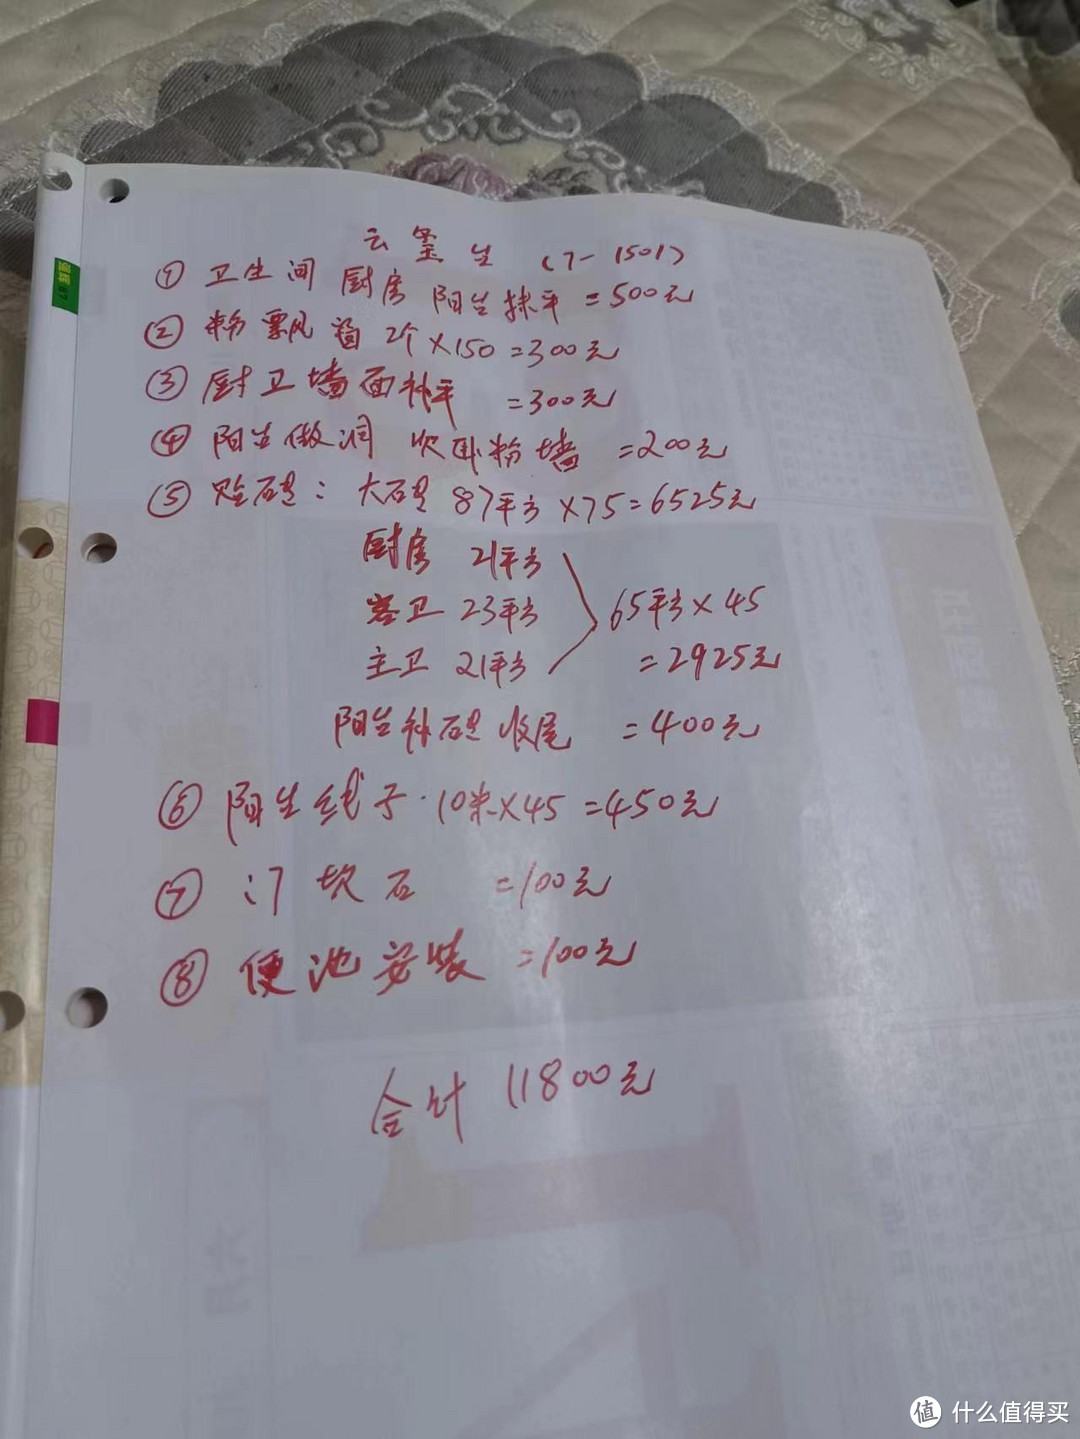 云玺台 (7-1501)
① 卫生间 厨房 阳台抹平 =500元
② 粉飘窗 2个×150=300元
③ 厨卫墙面补平 =300元
④ 阳台做洞 次卧粉墙 =200元
⑤ 贴砖: 大砖 87平方×75=6525元
厨房 21平方
客卫 23平方 65平方×45
主卫 21平方 =2925元
阳台补砖收尾 =400元
⑥ 阳台线子·10米×45=450元
⑦ 门坎石 =100元
⑧ 便池安装 =100元
合计 11800元
值 什么值得买